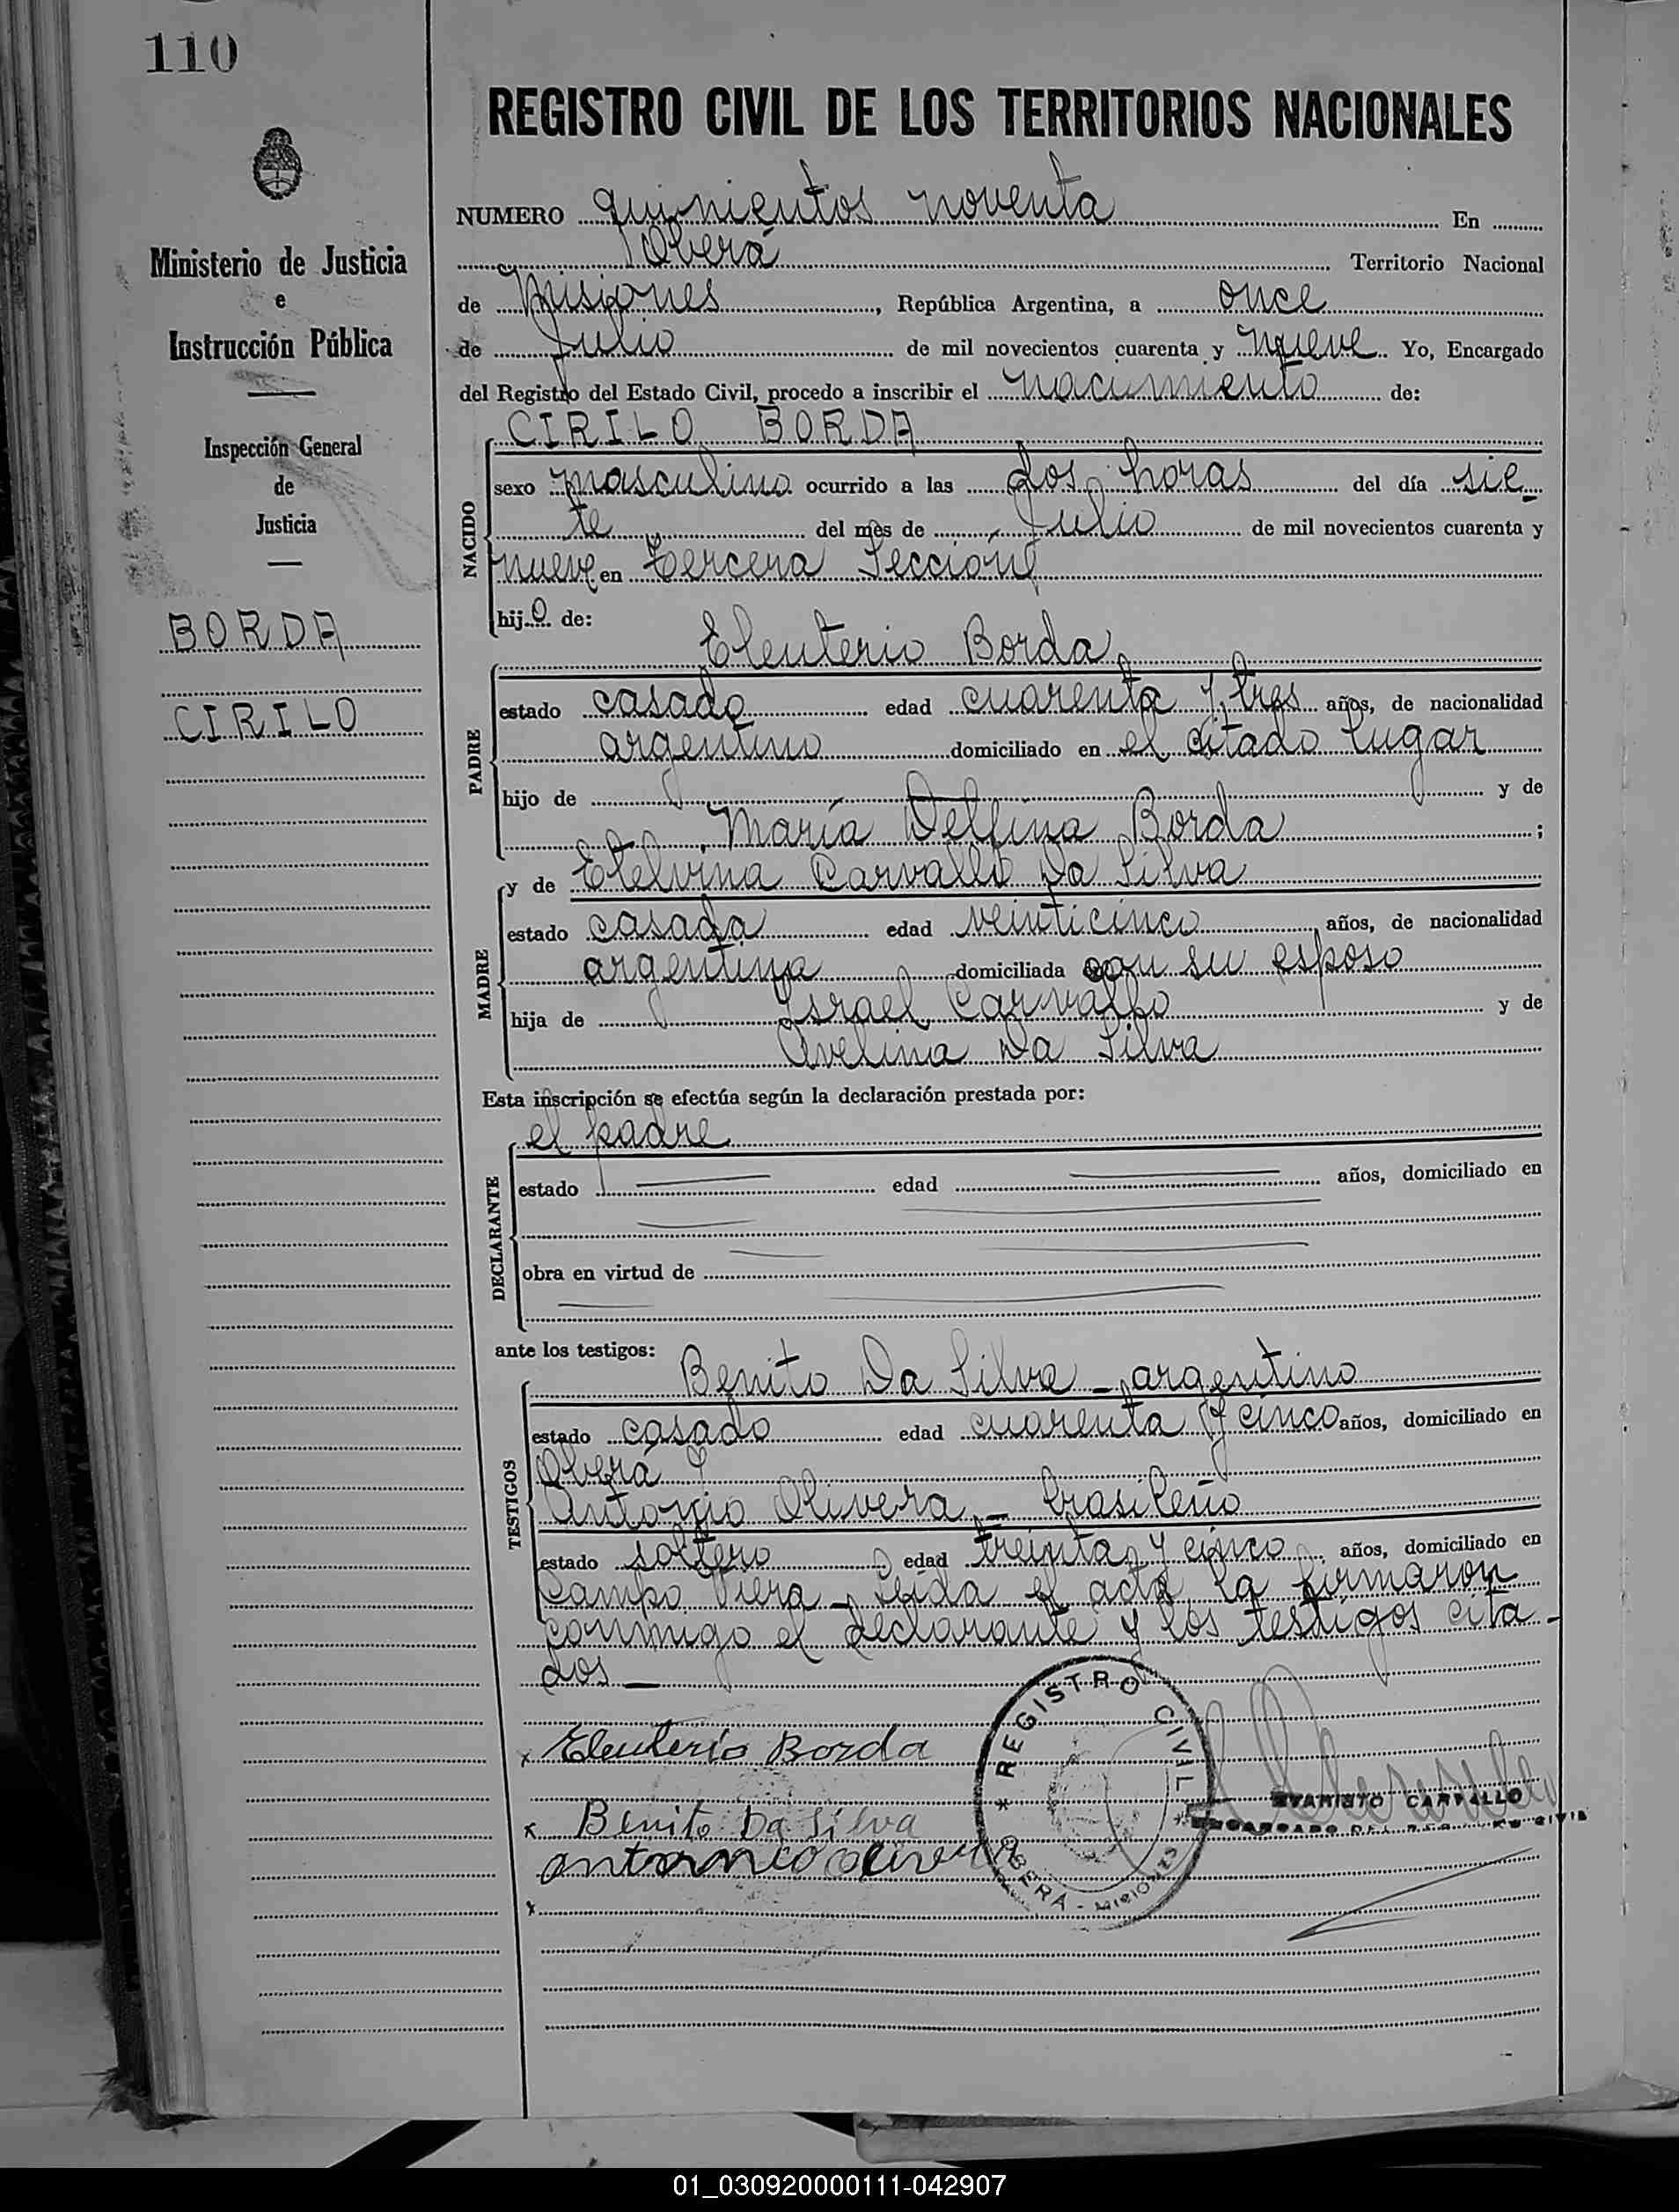 110
REGISTRO CIVIL DE LOS TERRITORIOS NACIONALES
Ministerio de Justicia
e
Instrucción Pública
Inspección General
de
Justicia
BORDA
CIRILO
NUMERO quinientos noventa En
Oberá Territorio Nacional
de Misiones, República Argentina, a once
de Julio de mil novecientos cuarenta y nueve Yo, Encargado
del Registro del Estado Civil, procedo a inscribir el nacimiento de:
CIRILO BORDA
NACIDO
sexo masculino ocurrido a las dos horas del día sie-
te del mes de Julio de mil novecientos cuarenta y
nueve en Tercera Sección
hijo de:
Eleuterio Borda
PADRE
estado casado edad cuarenta y tres años, de nacionalidad
argentino domiciliado en el citado lugar
hijo de y de
María Delfina Borda;
y de Etelvina Carvallo Da Silva
MADRE
estado casada edad veinticinco años, de nacionalidad
argentina domiciliada con su esposo
hija de Israel Carvalho y de
Avelina Da Silva
Esta inscripción se efectúa según la declaración prestada por:
el padre
DECLARANTE
estado edad años, domiciliado en
obra en virtud de
ante los testigos:
Benito Da Silva - argentino
TESTIGOS
estado casado edad cuarenta y cinco años, domiciliado en
Oberá y
Antonio Olivera - brasileño
estado soltero edad treinta y cinco años, domiciliado en
Campo Viera - Leída el acta la firmaron
conmigo el declarante y los testigos cita-
dos -
x Eleuterio Borda
x Benito Da Silva
antonio olivera
x
* REGISTRO CIVIL *
OBERA - MISIONES
EVARISTO CARVALLO
ENCARGADO DEL REGISTRO CIVIL
01_030920000111-042907